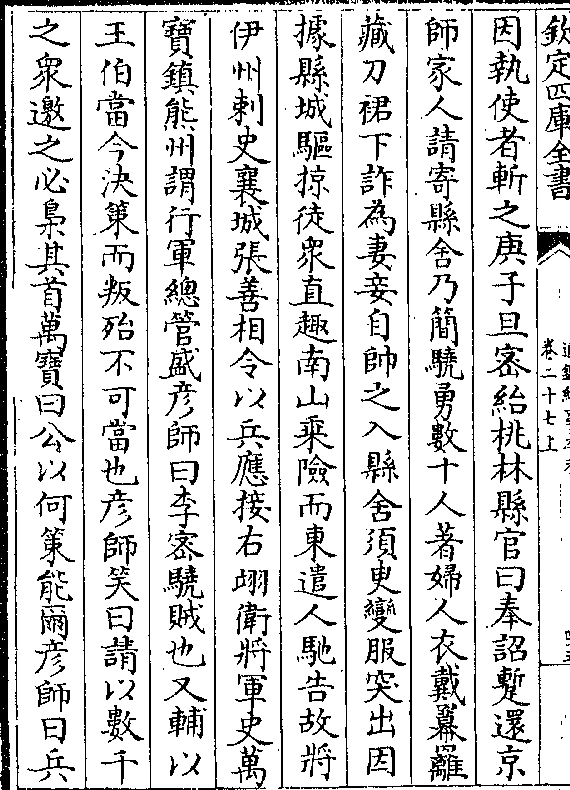 欽定四庫全書
卷二十七上
因執使者斬之庚子旦密紿桃林縣官曰奉詔蹔還京
師家人請寄縣舍乃簡驍勇數十人著婦人衣戴羃䍦
藏刀裙下詐為妻妾自帥之入縣舍須臾變服突出因
據縣城驅掠徒衆直趣南山乘險而東遣人馳告故將
伊州刺史襄城張善相令以兵應接右翊衛將軍史萬
寶鎮熊州謂行軍總管盛彦師曰李密驍賊也又輔以
王伯當今決策而叛殆不可當也彦師笑曰請以數千
之衆邀之必梟其首萬寶曰公以何策能爾彦師曰兵